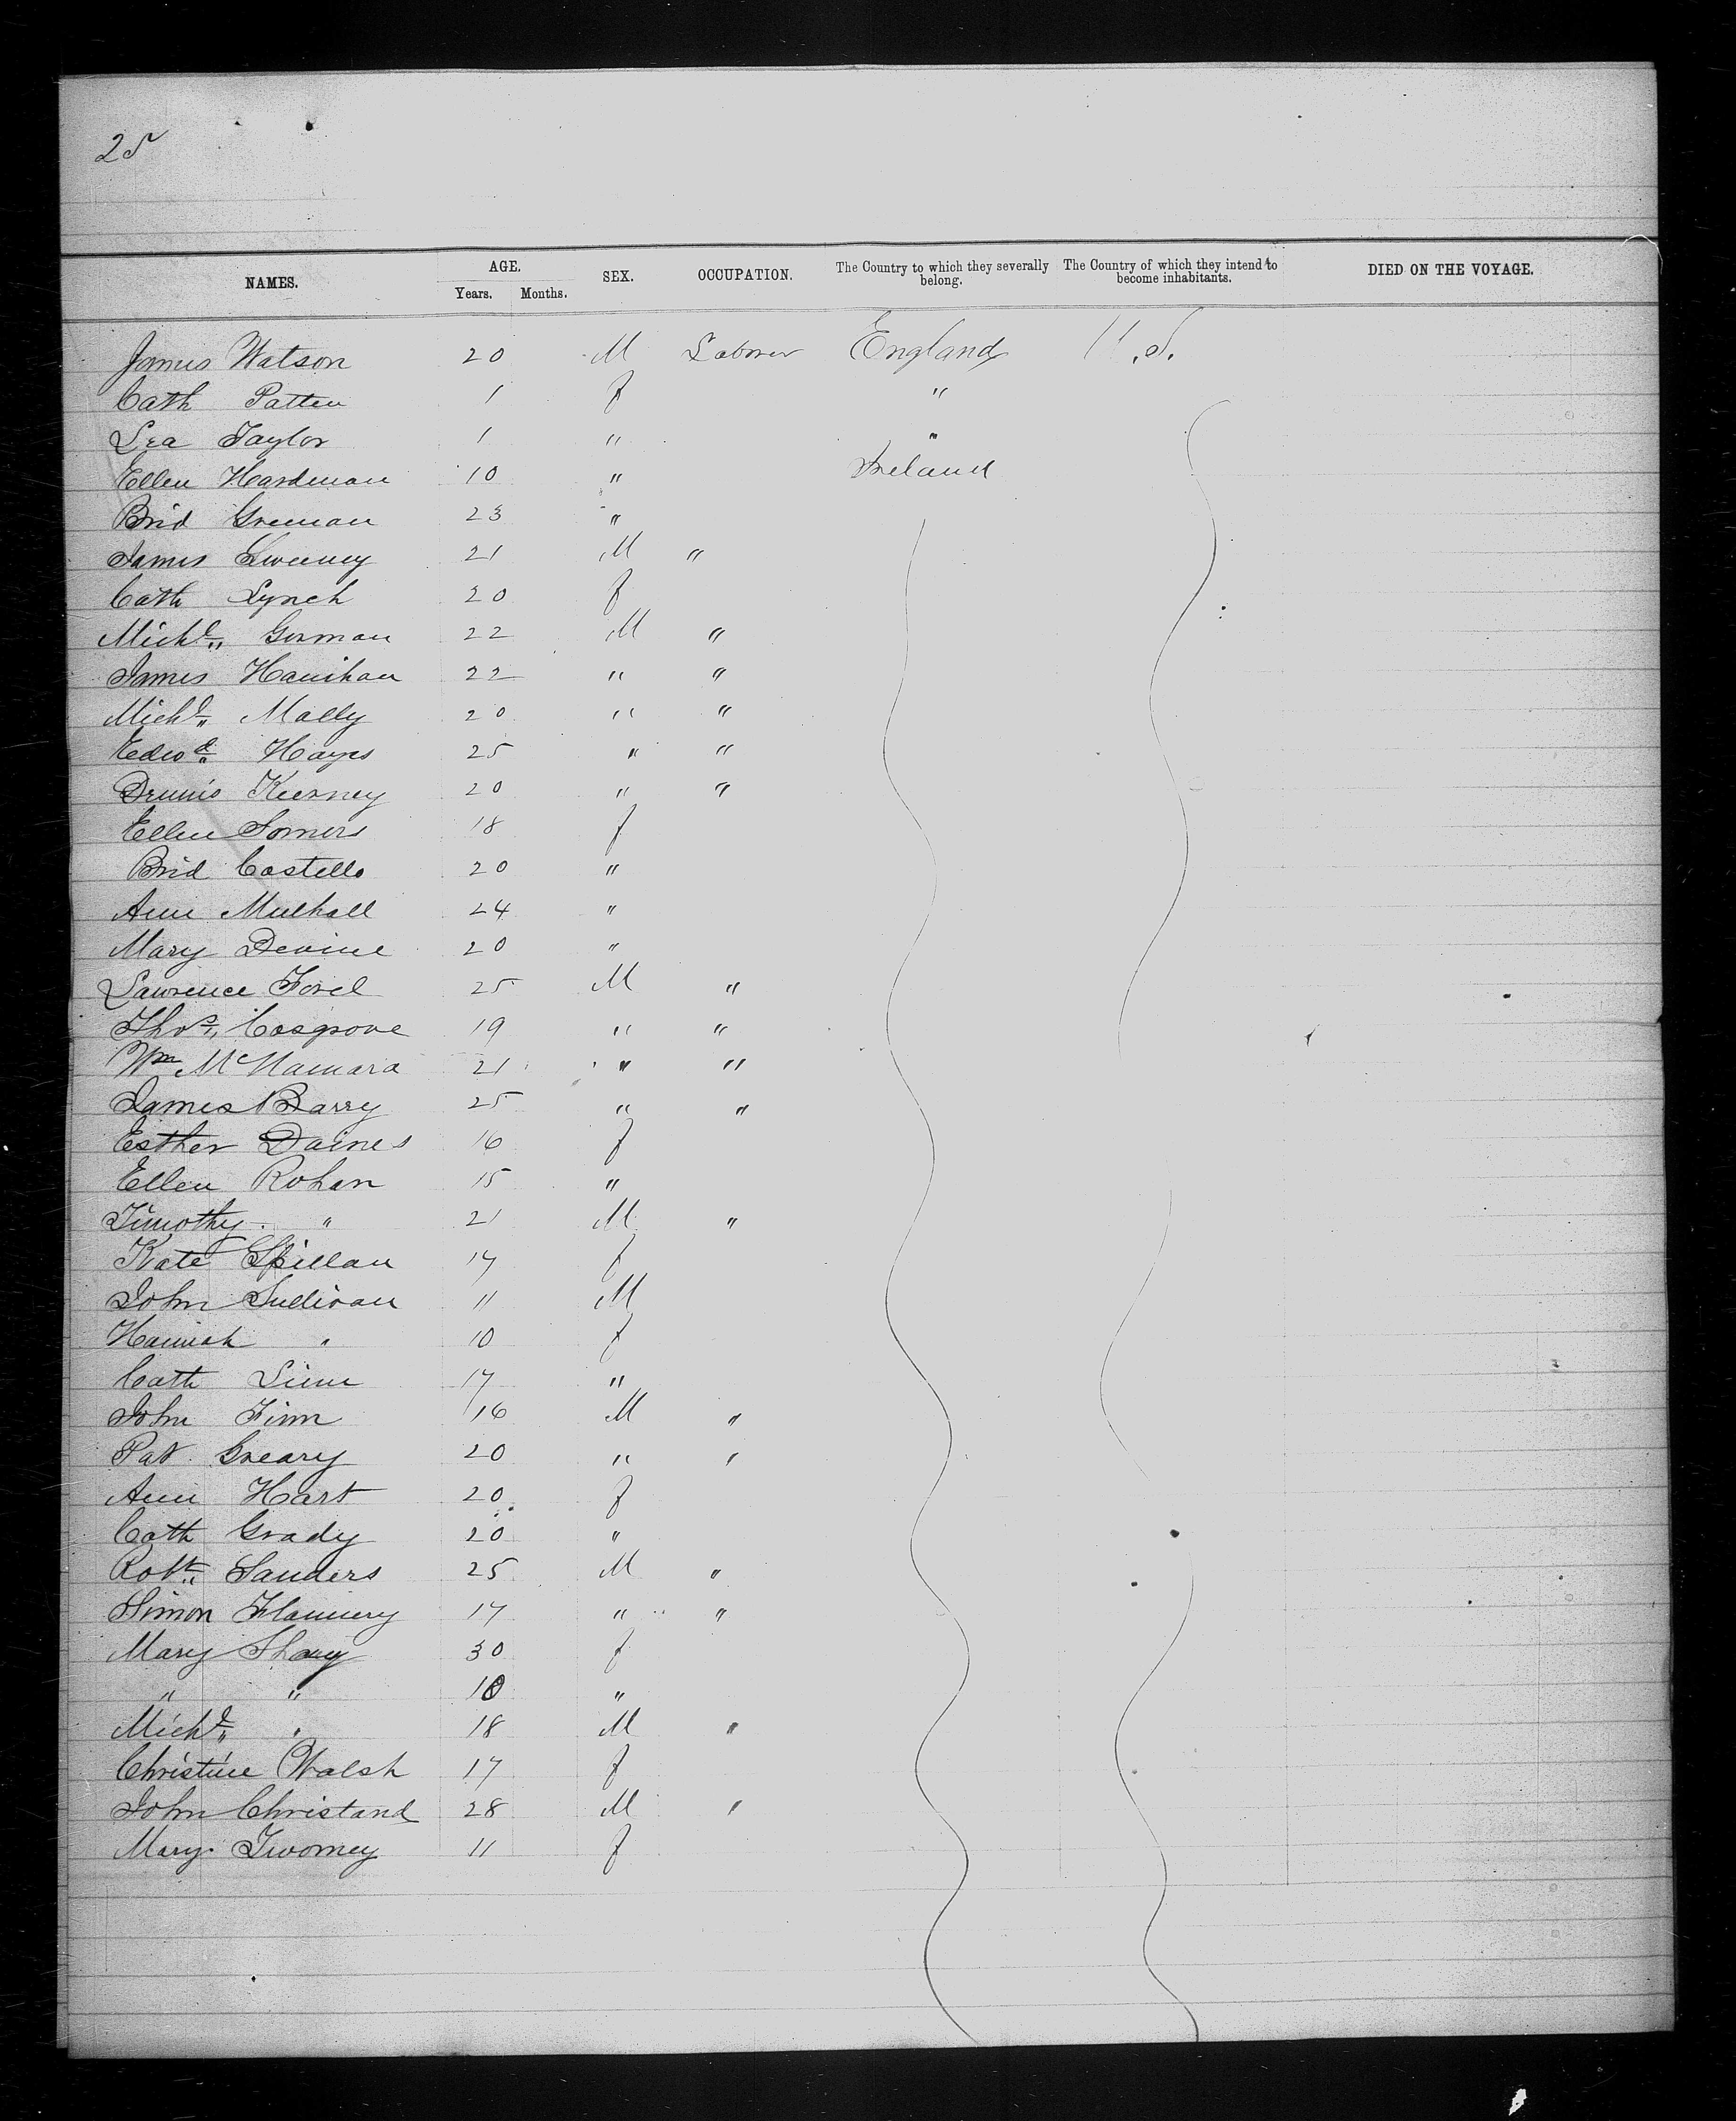 25
NAMES. AGE. Years. Months. SEX. OCCUPATION. The Country to which they severally belong. The Country of which they intend to become inhabitants. DIED ON THE VOYAGE.
James Watson 20 M Laborer England U.S.
Cath Patten 1 f "
Lea Taylor 1 " "
Ellen Hardman 10 " Ireland
Brid Grennan 23 "
James Sweeney 21 M "
Cath Lynch 20 f
Michl. Gorman 22 M "
James Hanihan 22 " "
Michl. Mally 20 " "
Edwd. Hayes 25 " "
Dennis Kierney 20 " "
Ellen Somers 18 f
Brid Costello 20 "
Ann Mulhall 24 "
Mary Devine 20 "
Lawrence 25 M "
Thos. Cosgrove 19 " "
Wm McNamara 21 " "
James Barry 25 " "
Esther Daines 16 f
Ellen Rohan 15 "
Timothy " 21 M "
Kate Spillan 17 f
John Sullivan 11 M
Hannah " 10 f
Cath 17 "
John Finn 16 M "
Pat Greary 20 " "
Ann Hart 20 f
Cath Grady 20 "
Robt. Sanders 25 M "
Simon Flannery 17 " "
Mary 30 f
" " 10 "
Michl. " 18 M "
Christine Walsh 17 f
John Christand 28 M "
Mary Twomey 11 f